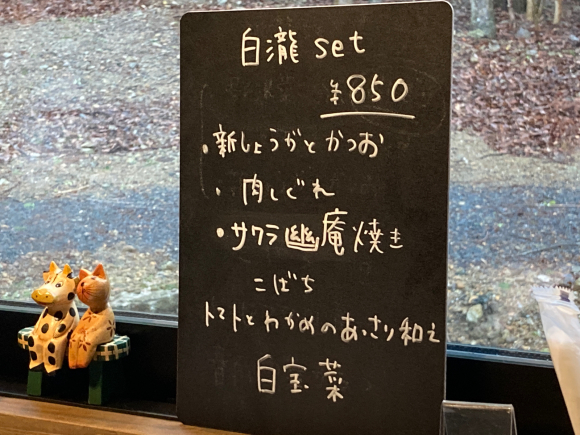 白瀧 set
¥850
・新しょうがとかつお
・肉しぐれ
・サワラ幽庵焼き
こばち
トマトとわかめのあっさり和え
白宝菜